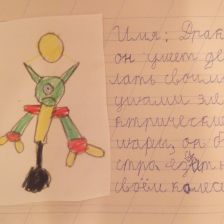 Имя: Драк
он умеет де
лать своими
ушами эле
ктрические
шары, он бы
стра ездит на
своём колесе